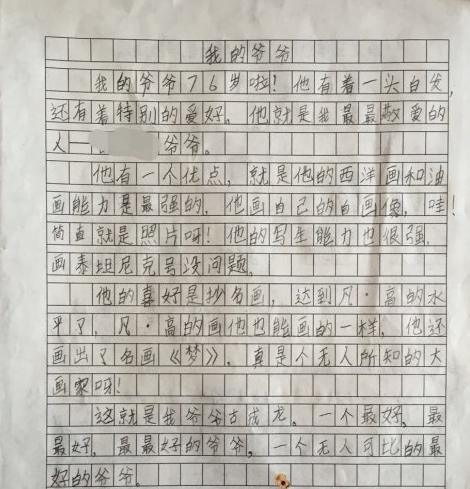 我的爷爷
我的爷爷76岁啦!他有着一头白发,
还有着特别的爱好。他就是我最最敬爱的
人—爷爷。
他有一个优点,就是他的西洋画和油
画能力是最强的.他画自己的自画像,哇!
简直就是照片呀!他的写生能力也很强.
画泰坦尼克号没问题。
他的喜好是抄名画,达到凡·高的水
平了,凡·高的画他也能画的一样,他还
画出了名画《梦》,真是个无人所知的大
画家呀!
这就是我爷爷古成龙.一个最好,最
最好,最最好的爷爷,一个无人可比的最
好的爷爷.